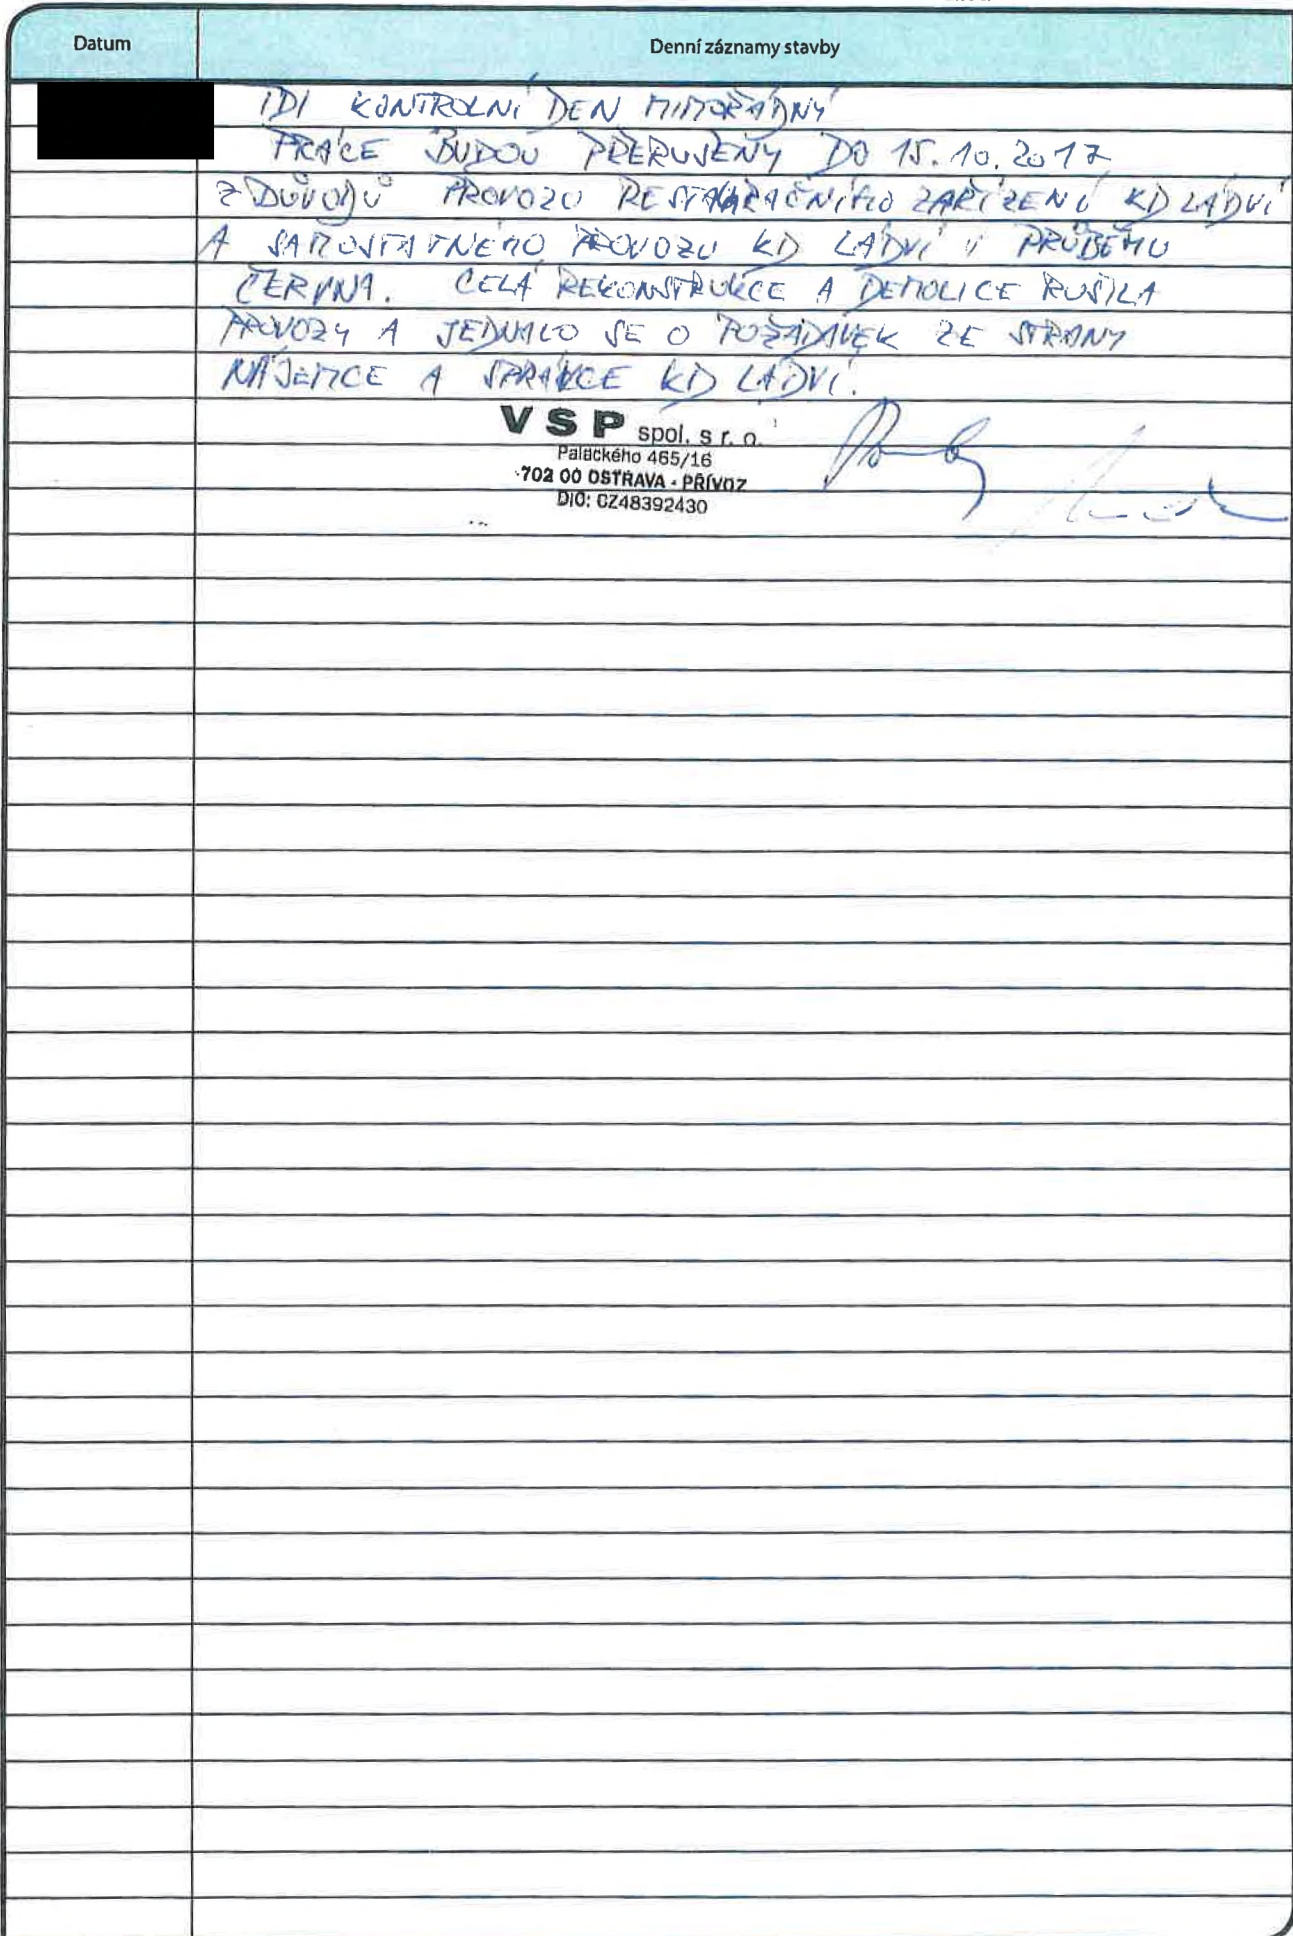 Datum
Denní záznamy stavby
TDI KONTROLNÍ DEN MIMOŘÁDNÝ
PRÁCE BUDOU PŘERUŠENY DO 15.10.2017
Z DŮVODŮ PROVOZU RESTAURAČNÍHO ZAŘÍZENÍ KD LÁDVÍ
A SAMOSTATNÉHO PROVOZU KD LÁDVÍ V PRŮBĚHU
ČERVNA. CELÁ REKONSTRUKCE A DEMOLICE RUŠILA
PROVOZY A JEDNALO SE O POŽADAVEK ZE STRANY
NÁJEMCE A SPRÁVCE KD LÁDVÍ.
VSP spol. s r. o.
Palackého 465/16
702 00 OSTRAVA - PŘÍVOZ
DIČ: CZ48392430